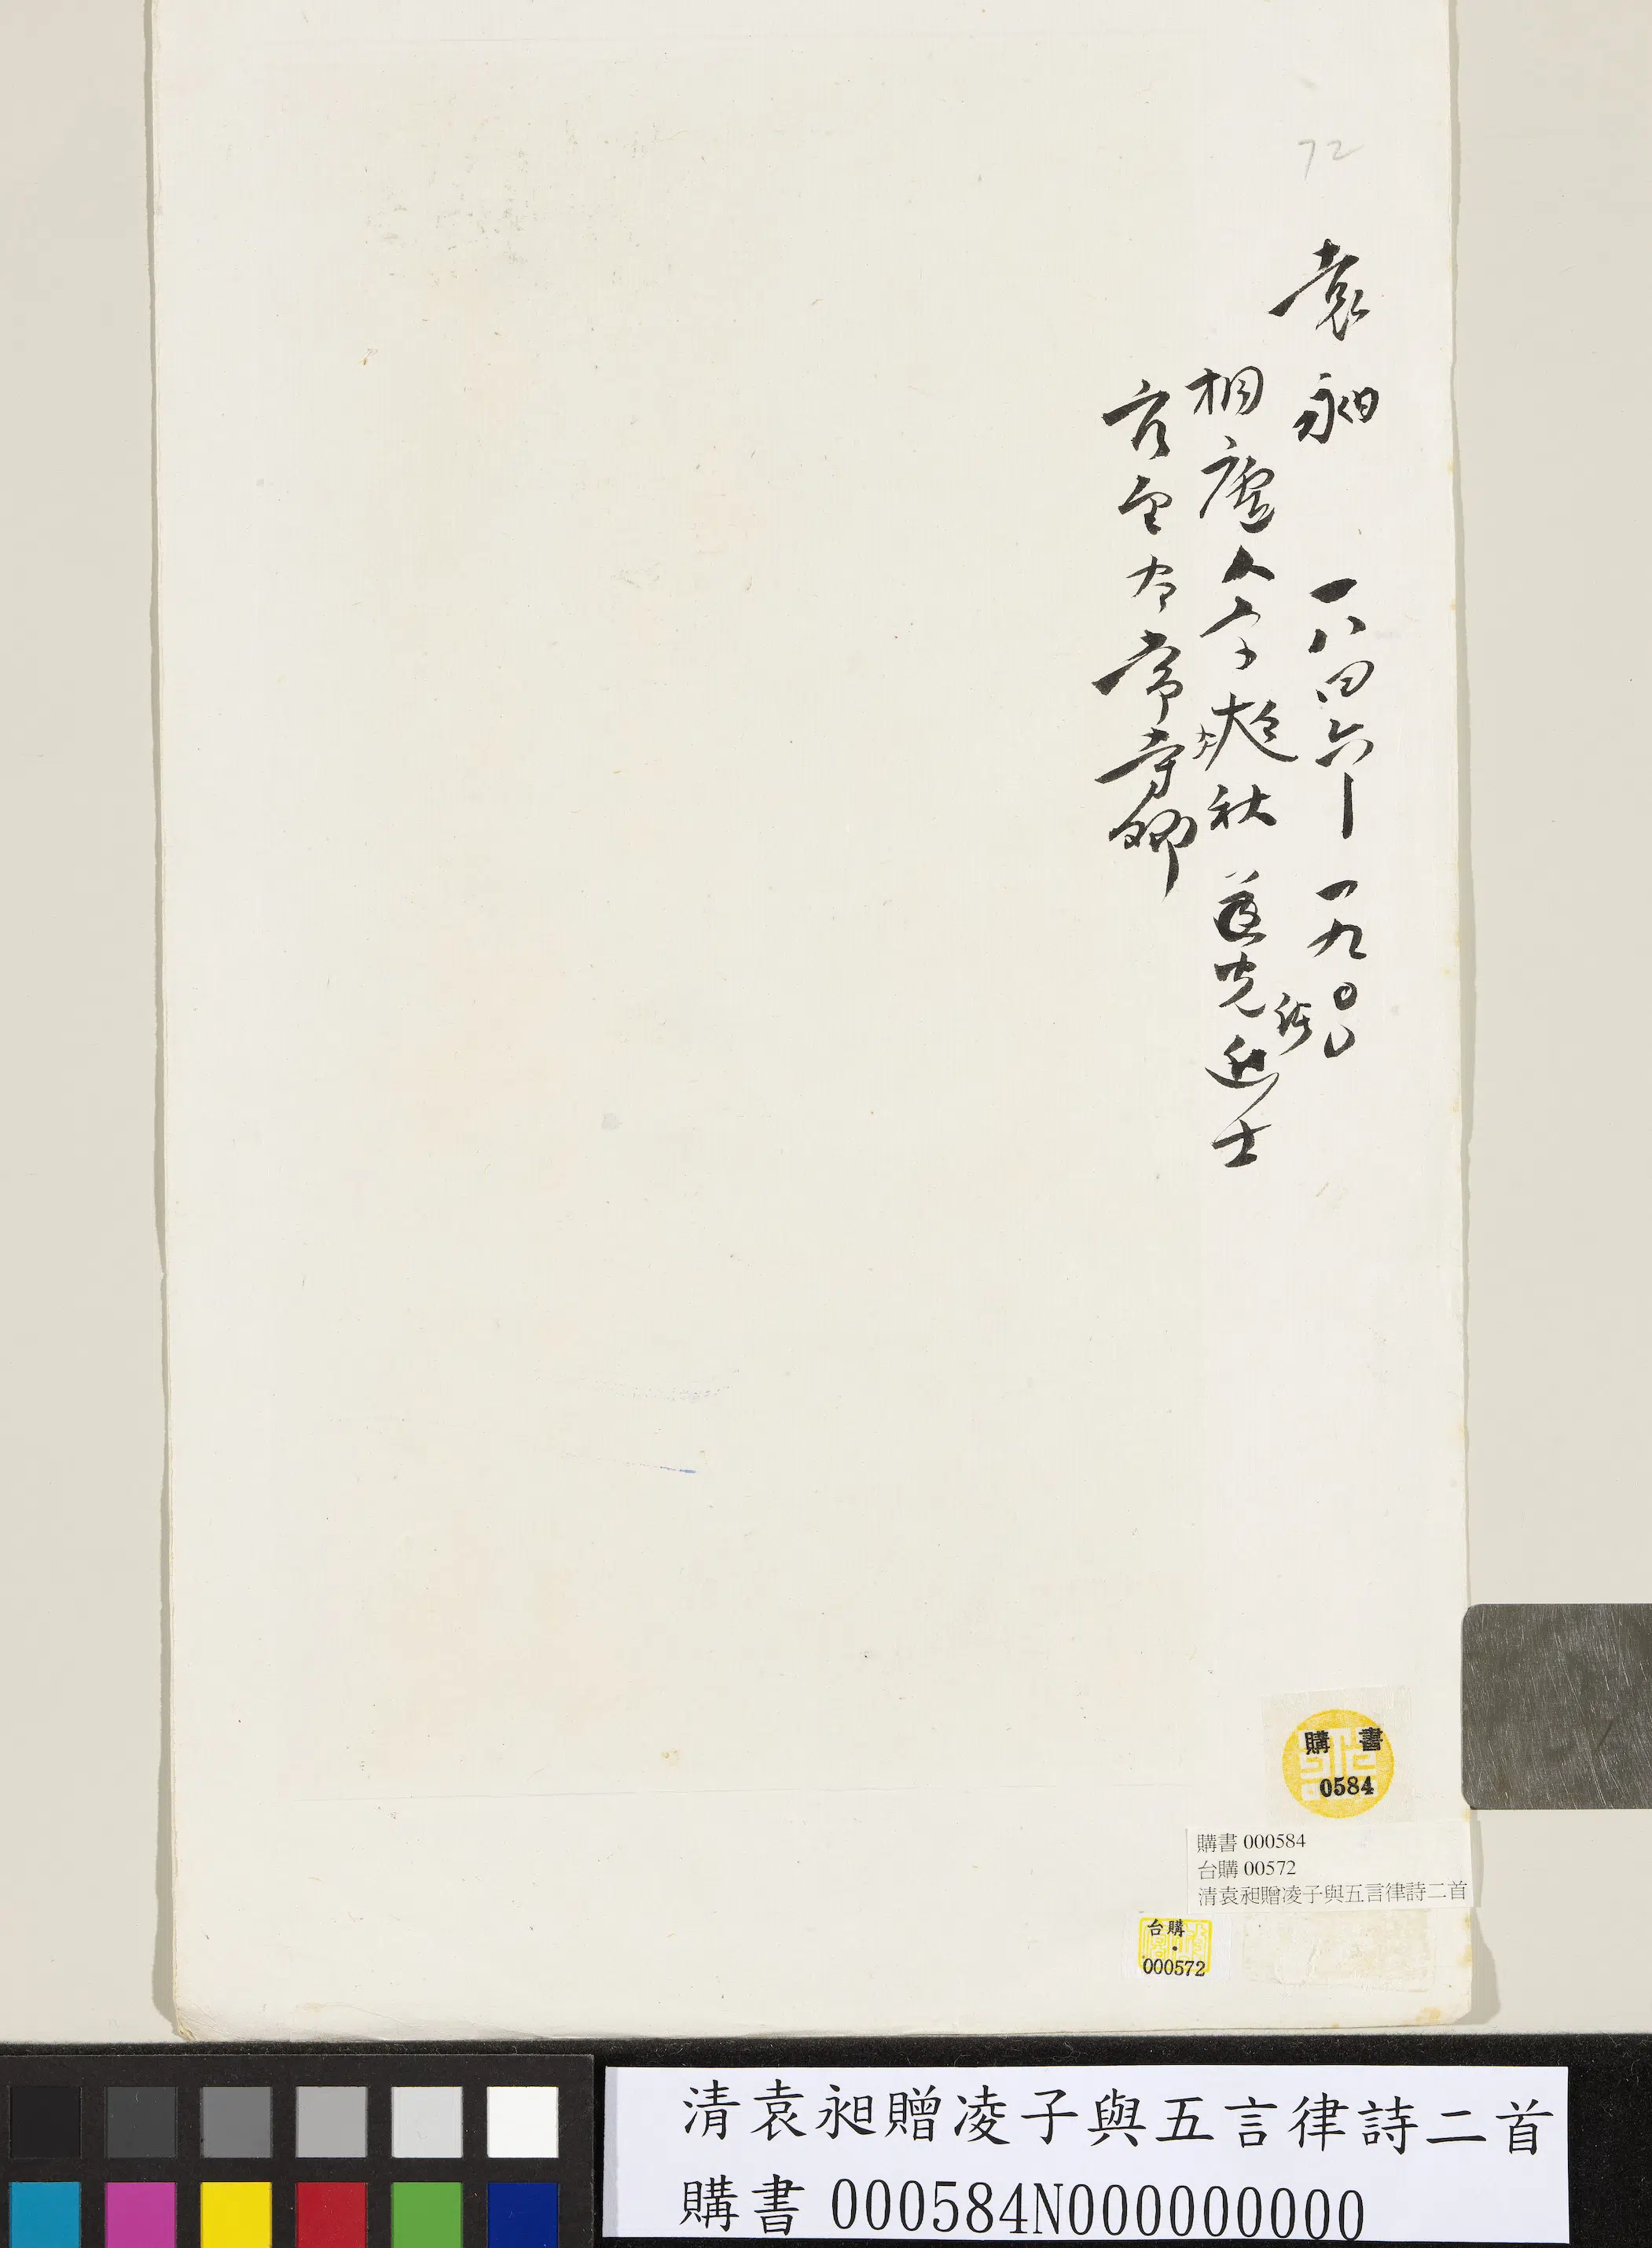 72
袁昶 一八四六—一九〇〇
桐廬人字爽秋 道光進士
官至太常寺卿
購書
0584
購書 000584
台購 00572
清袁昶贈凌子與五言律詩二首
台購
000572
清袁昶贈凌子與五言律詩二首
購書 000584N000000000